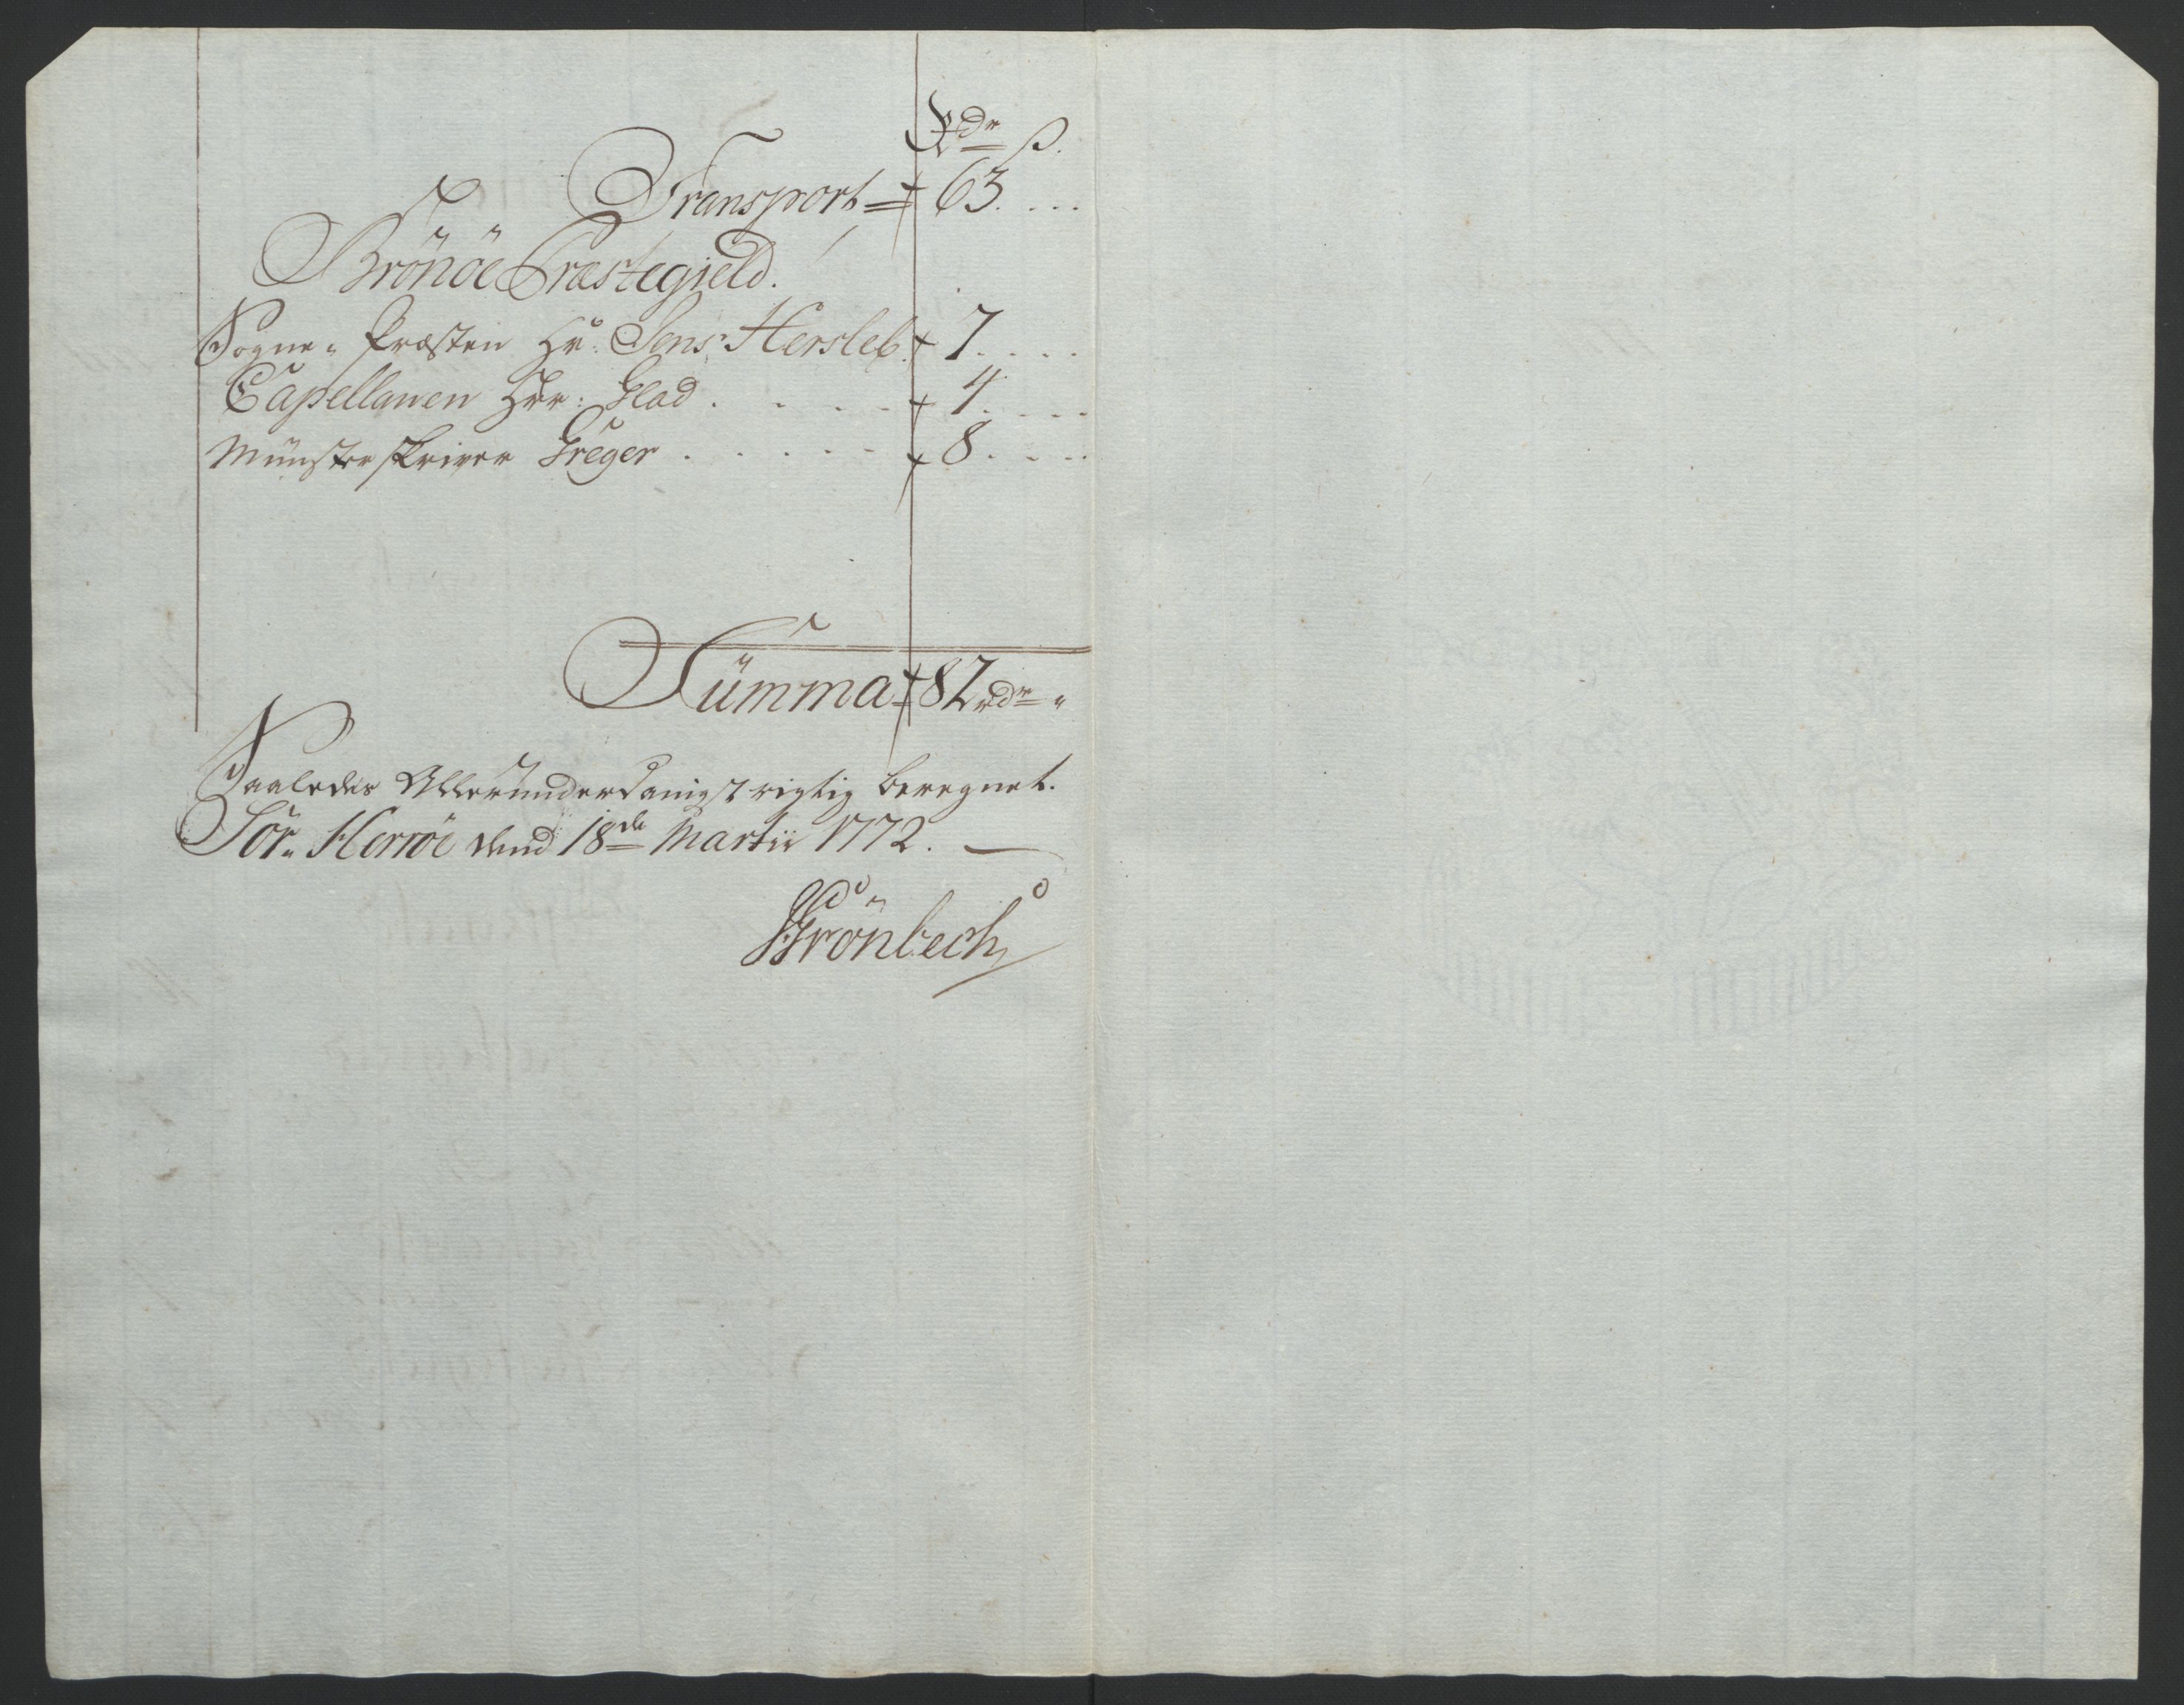 Rdr ß.
Transport 63. . . .
Brönöe Præstegield.
Sogne- Præsten Hr: Jens Hersleb. 7. . . .
Capellanen Hr: Glad . . . . . 4. . . . .
Münsterskriver Greger . . . . . 8. . . . .
Summa 82 rdr "
Saaledes Allerunderdanigst rigtig beregnet.
Sör- Herröe dend 18de Martii 1772. —
Grönbech